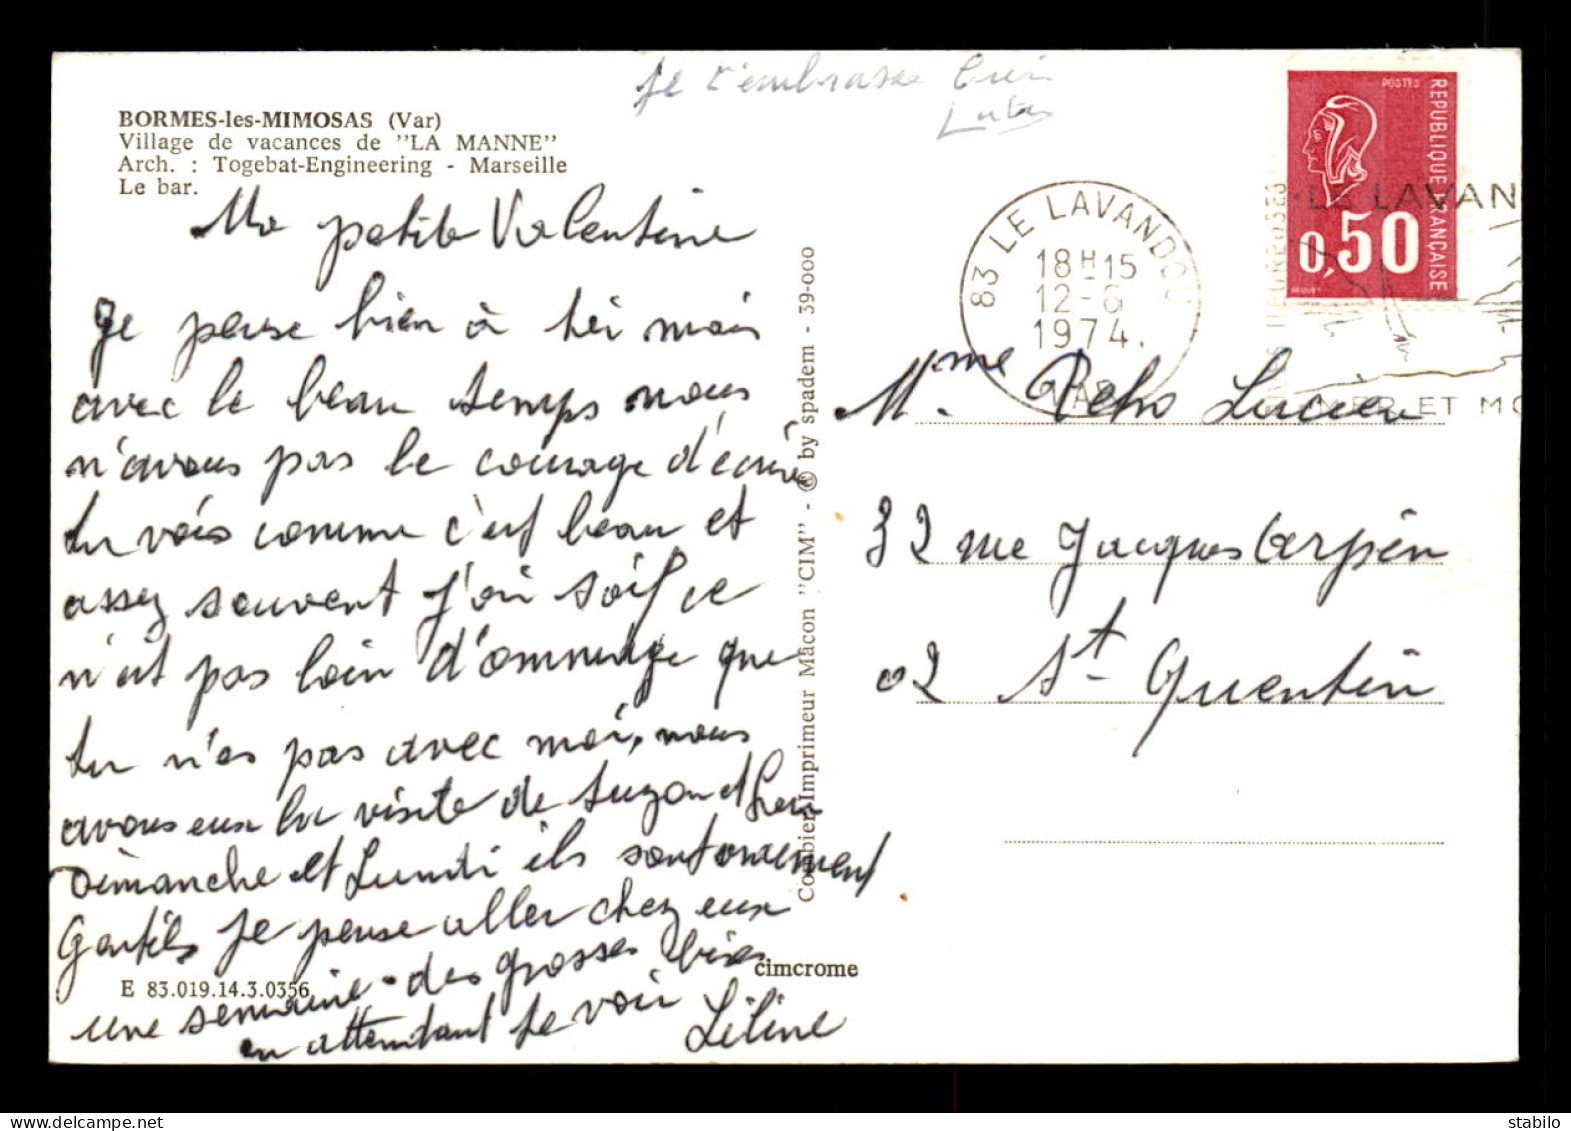 Je t'embrasse bien
BORMES-les-MIMOSAS (Var)
Village de vacances de "LA MANNE"
Arch. : Togebat-Engineering - Marseille
Le bar.
Ma petite Valentine
Je pense bien à toi mais
avec le beau temps nous
n'avons pas le courage d'écrire
tu vois comme c'est beau et
assez souvent j'ai soif ce
n'est pas loin d'ommage que
tu n'es pas avec moi, nous
avons eux la visite de Suzon et
Dimanche et Lundi ils sont vraiment
Gentils je pense aller chez eux
une semaine - des grosses bises
en attendant te voir Liline
E 83.019.14.3.0356
cimcrome
Combier Imprimeur Mâcon "CIM" - © by spadem - 39-000
83 LE LAVANDOU
18H15
12-6
1974.
VAR
POSTES
REPUBLIQUE FRANÇAISE
0,50
BEQUET
LE LAVAN
MER ET MO
Mme Lucien
32 rue Jacques
02 St Quentin
stabilo
delcampe.net